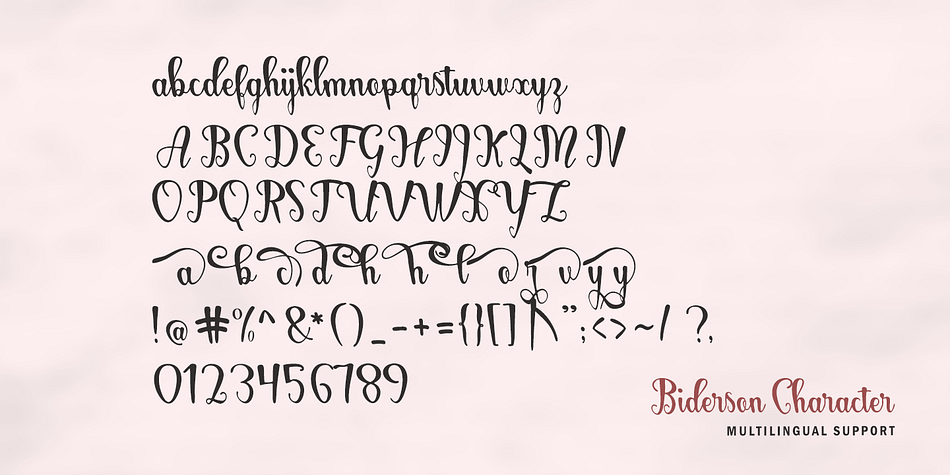 abcdefghijklmnopqrstuvwxyz
ABCDEFGHIJKLMN
OPQRSTUVWXYZ
a b c d h h l o t v y y
!@#%^&*()_-+={}[]\"";:<>~/ ?,
0123456789
Biderson Character
MULTILINGUAL SUPPORT